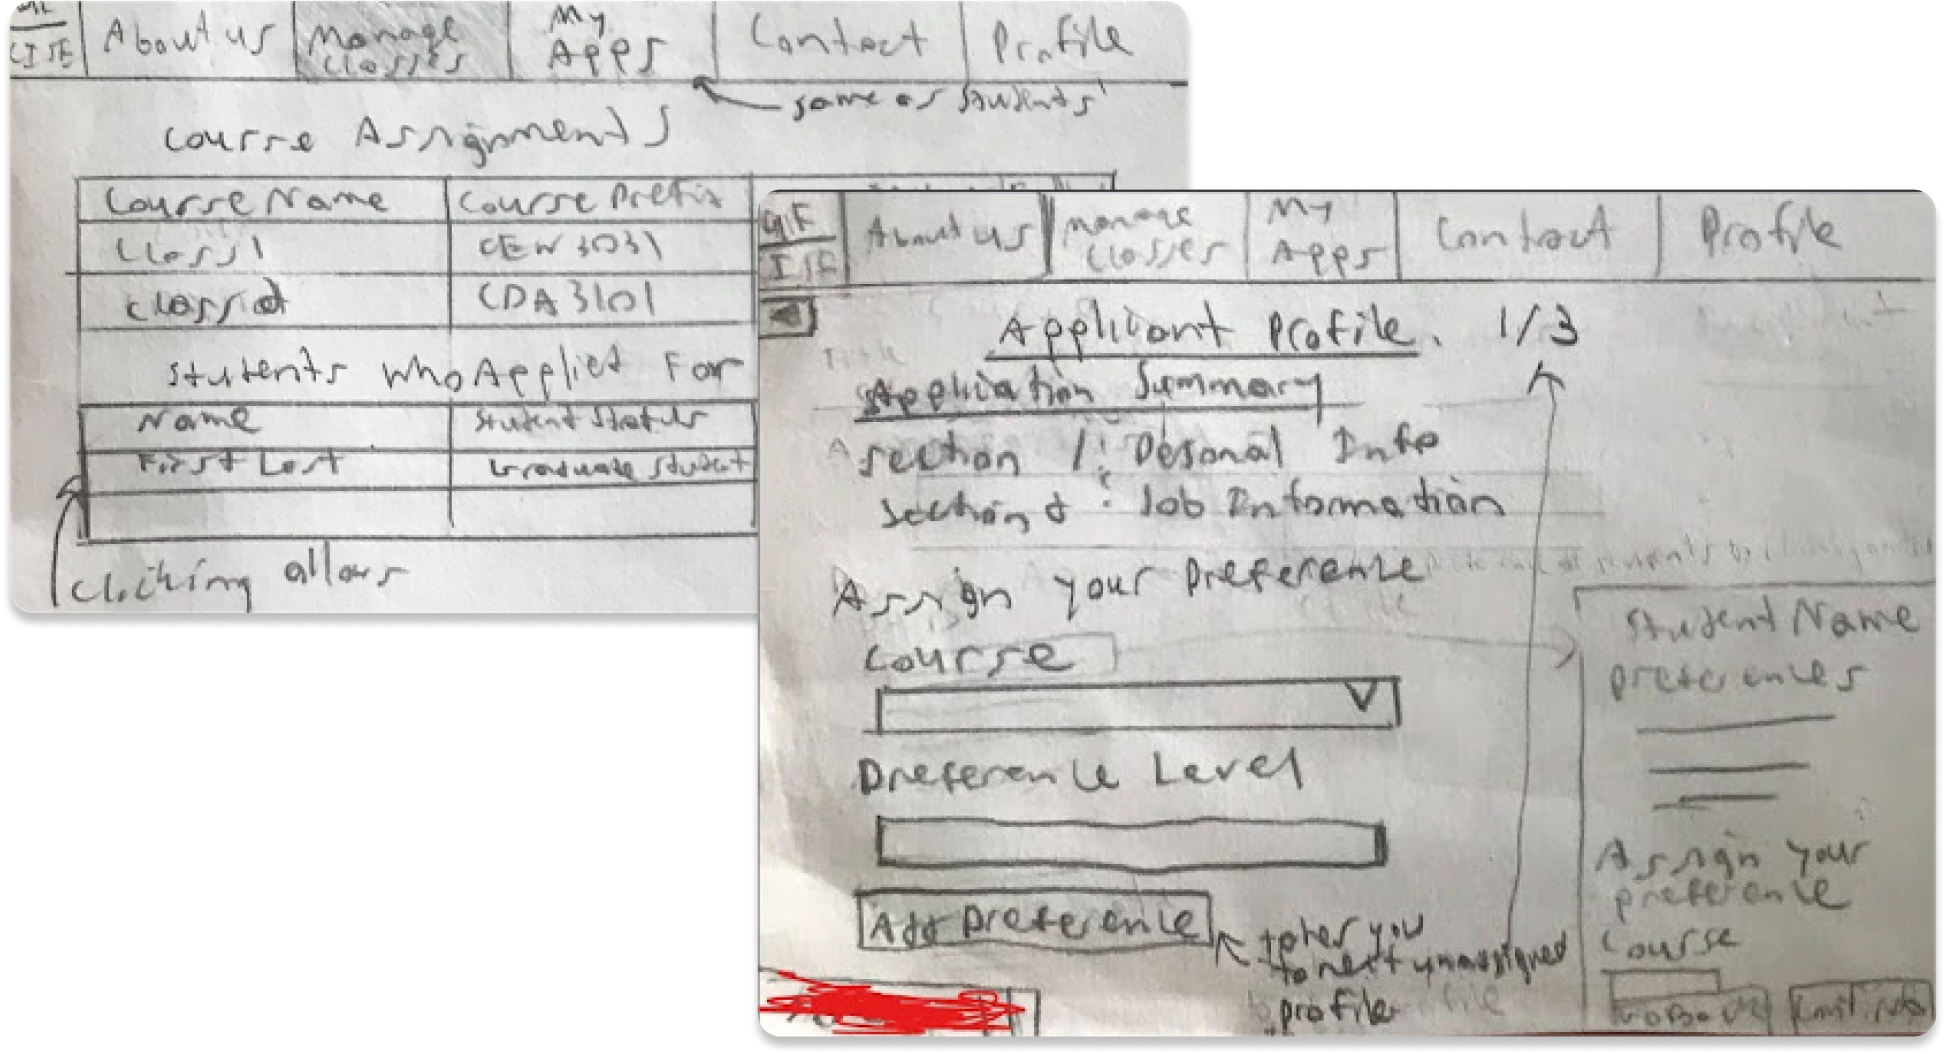 CISE
About us
Manage
Classes
My
Apps
Contact
Profile
same as students'
Course Assignments
Course Name
Course Prefix
Class 1
CEN 3031
Class 2
CDA 3101
Students Who Applied For
Name
Student Status
First Last
Graduate Student
Clicking allows
About us
Manage
Classes
My
Apps
Contact
Profile
Applicant Profile. 1/3
Application Summary
Section 1: Personal Info
Section 2: Job Information
Assign your Preference
Course
Preference Level
Add Preference
takes you
to next unassigned
profile
Student Name
preferences
Assign your
preference
Course